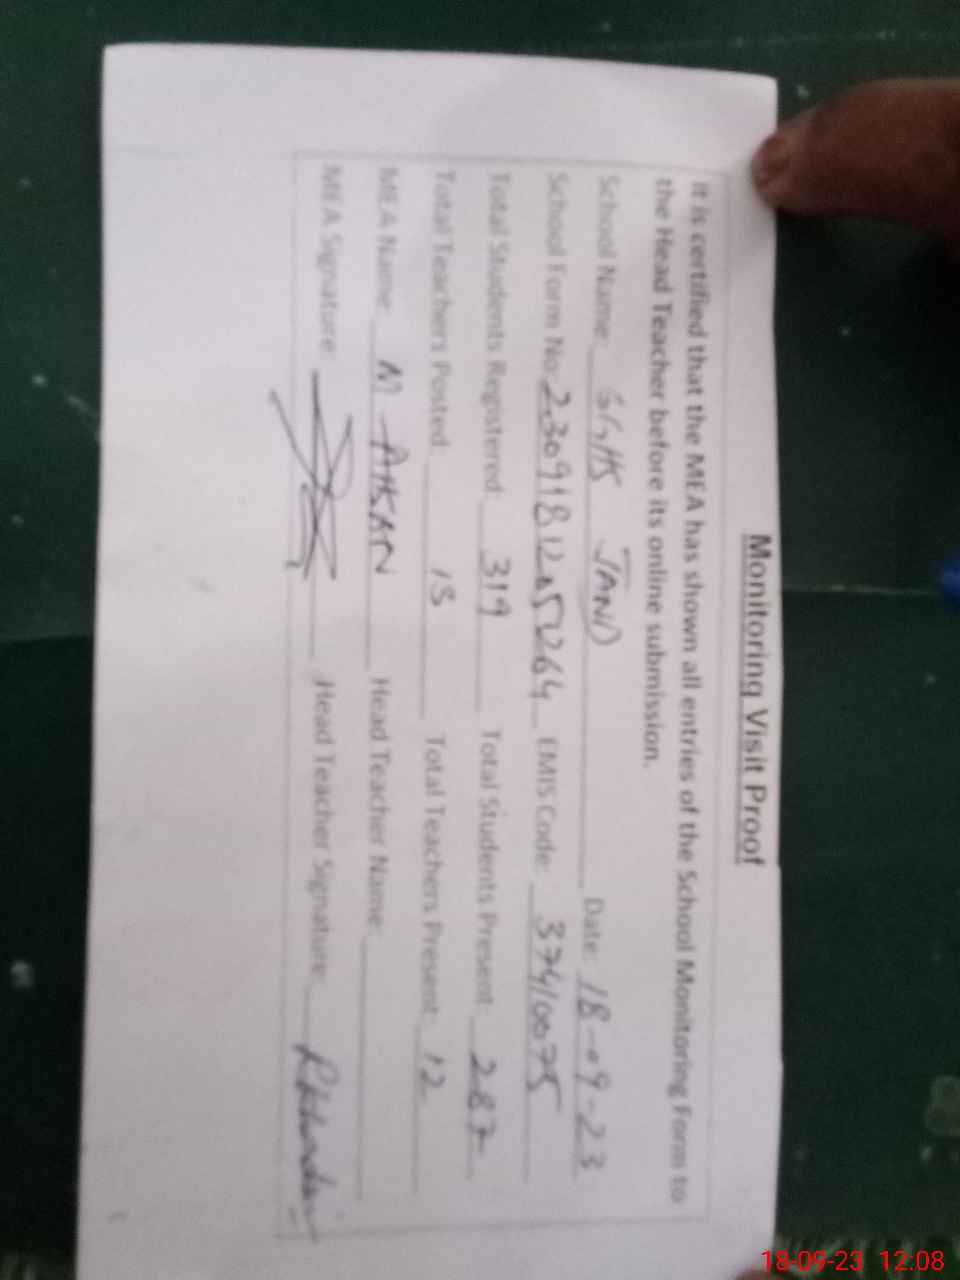 Monitoring Visit Proof
It is certified that the MEA has shown all entries of the School Monitoring Form to
the Head Teacher before its online submission.
School Name: GGHS JAND Date: 18-09-23
School Form No. EMIS Code: 37410075
Total Students Registered: 319 Total Students Present: 287
Total Teachers Posted: Total Teachers Present: 12
MEA Name: M AHSAN Head Teacher Name:
MEA Signature: Head Teacher Signature:
18-09-23 12:08